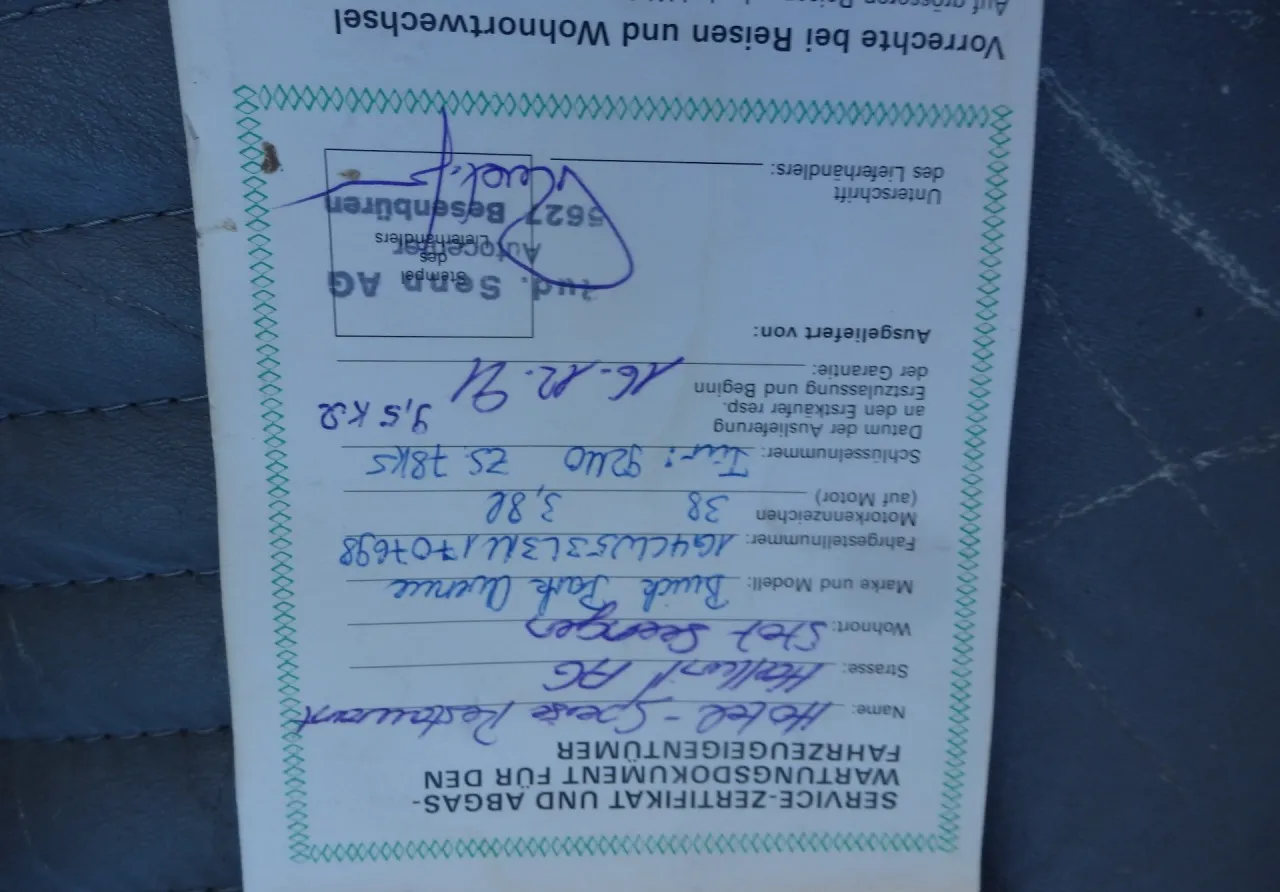 SERVICE-ZERTIFIKAT UND ABGAS-
WARTUNGSDOKUMENT FÜR DEN
FAHRZEUGEIGENTÜMER
Name: Hotel - Speise Restaurant
Strasse: Hallwil AG
Wohnort: Seengen
Marke und Modell: Buick Park Avenue
Fahrgestellnummer: 1G4CW53L3M1707698
Motorkennzeichen
(auf Motor) 38 3,8l
Schlüsselnummer: Tür: 92U0 ZS. 78K5
Datum der Auslieferung
an den Erstkäufer resp. 9,5 KΩ
Erstzulassung und Beginn
der Garantie: 16-12.91
Ausgeliefert von:
Rud. Senn AG
Stempel
des
Autocenter
Lieferhändlers
5627 Besenbüren
Unterschrift
des Lieferhändlers:
Vorrechte bei Reisen und Wohnortwechsel